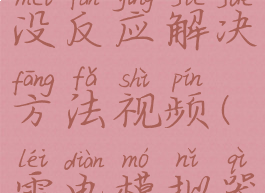 méi fǎn yìng jiě jué
没反应解决
fāng fǎ shì pín
方法视频(
léi diàn mó nǐ qì
雷电模拟器